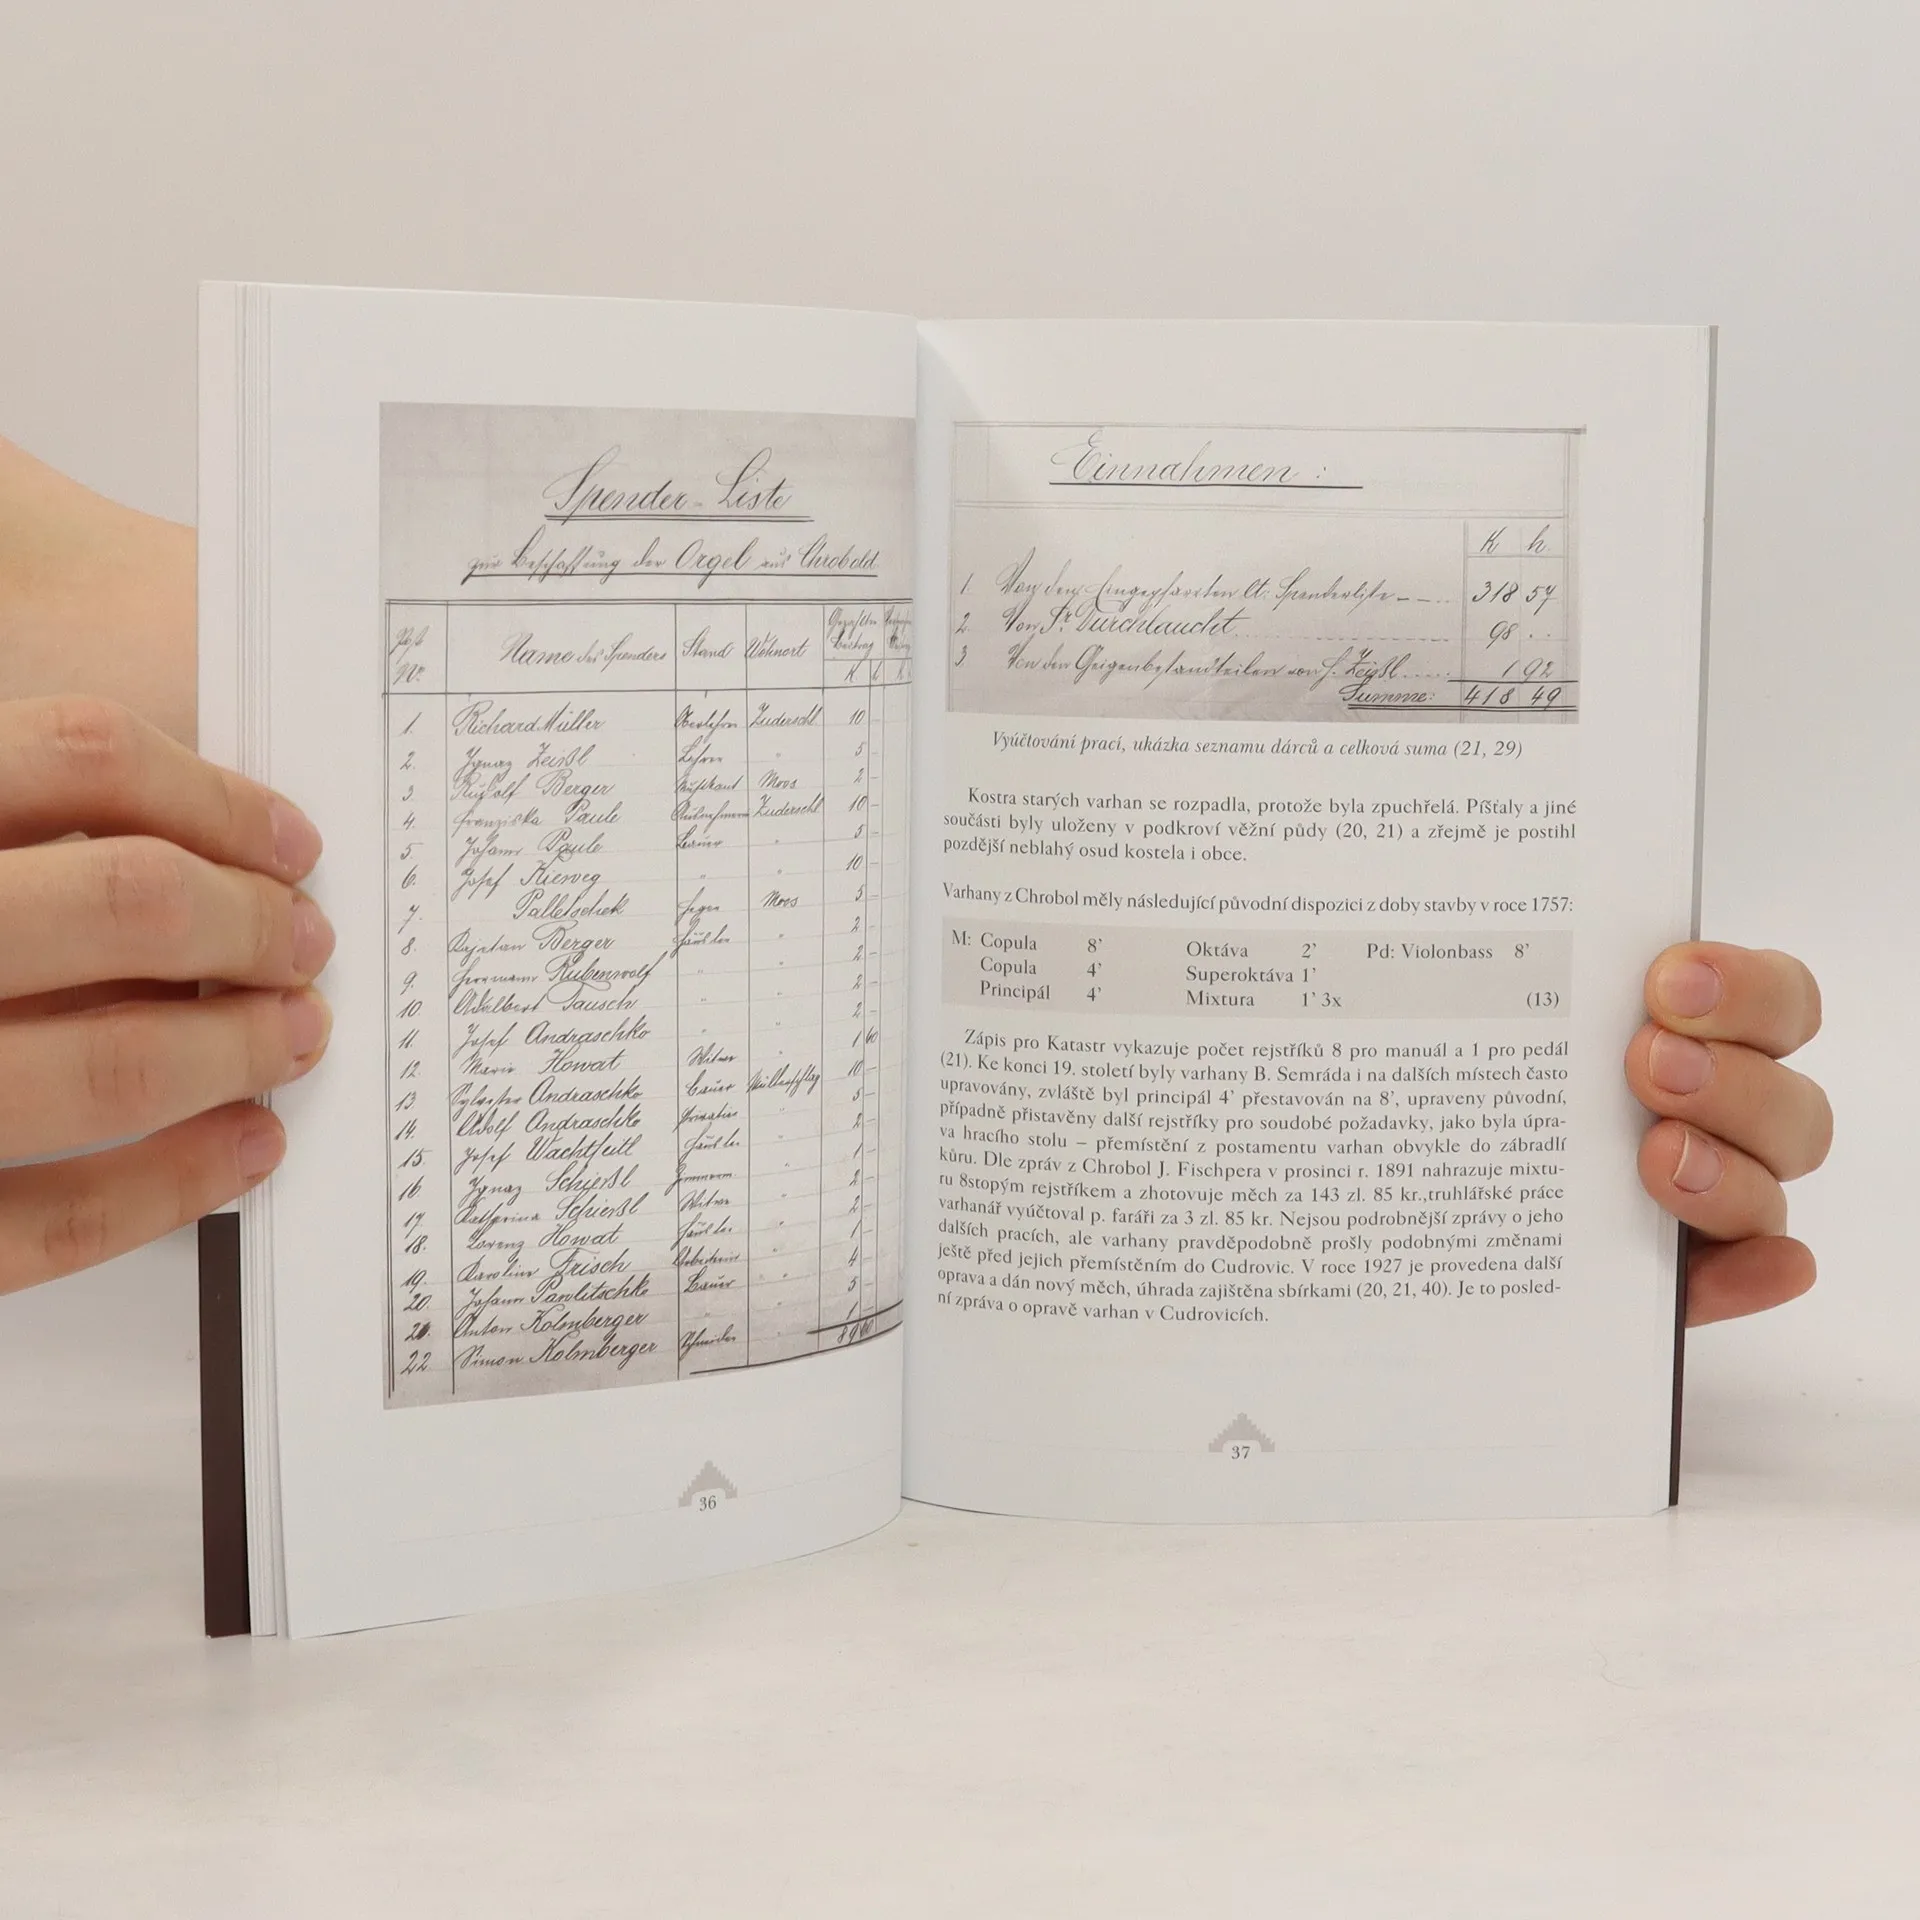 Spender-Liste
zur Beschaffung der Orgel aus Chrobold.
Post Nr. Name des Spenders Stand Wohnort Gezahlter Beitrag
K h K
1. Richard Müller Oberlehrer Zuderschl 10 -
2. Ignaz Zeisl Lehrer " 5 -
3. Rudolf Berger Moos 2 -
4. Franziska Paule Zuderschl 10 -
5. Johann Paule Bauer " 5 -
6. Josef Kieweg " " 10 -
7. Palletschek Heger Moos 5 -
8. Kajetan Berger Häusler " 2 -
9. Herrmann Rubenwolf " " 2 -
10. Adalbert Pausch " " 2 -
11. Josef Andraschko " " 2 -
12. Marie Howat Witwe " 1 60
13. Sylvester Andraschko Bauer Müllerschlag 10 -
14. Adolf Andraschko Private " 5 -
15. Josef Wachtfeitl Häusler " 2 -
16. Ignaz Schiersl " 1 -
17. Katharina Schiersl Witwe " 2 -
18. Lorenz Howat Häusler " 2 -
19. Karoline Frisch Arbeiterin " 1 -
20. Johann Pawlitschko Bauer " 4 -
21. Anton Kolmberger " " 5 -
22 Simon Kolmberger Schneider " 1 -
89 60
36
Einnahmen :
K h
1. Von den Eingepfarrten lt. Spenderliste 318 57
2. Von Sr. Durchlaucht 98 . .
3. Von den Geigenbestandteilen von H. Zeisl 1 92
Summe: 418 49
Vyúčtování prací, ukázka seznamu dárců a celková suma (21, 29)
Kostra starých varhan se rozpadla, protože byla zpuchřelá. Píšťaly a jiné
součásti byly uloženy v podkroví věžní půdy (20, 21) a zřejmě je postihl
pozdější neblahý osud kostela i obce.
Varhany z Chrobol měly následující původní dispozici z doby stavby v roce 1757:
M: Copula 8’ Oktáva 2’ Pd: Violonbass 8’
Copula 4’ Superoktáva 1’
Principál 4’ Mixtura 1’ 3x (13)
Zápis pro Katastr vykazuje počet rejstříků 8 pro manuál a 1 pro pedál
(21). Ke konci 19. století byly varhany B. Semráda i na dalších místech často
upravovány, zvláště byl principál 4’ přestavován na 8’, upraveny původní,
případně přistavěny další rejstříky pro soudobé požadavky, jako byla úpra-
va hracího stolu – přemístění z postamentu varhan obvykle do zábradlí
kůru. Dle zpráv z Chrobol J. Fischpera v prosinci r. 1891 nahrazuje mixtu-
ru 8stopým rejstříkem a zhotovuje měch za 143 zl. 85 kr.,truhlářské práce
varhanář vyúčtoval p. faráři za 3 zl. 85 kr. Nejsou podrobnější zprávy o jeho
dalších pracích, ale varhany pravděpodobně prošly podobnými změnami
ještě před jejich přemístěním do Cudrovic. V roce 1927 je provedena další
oprava a dán nový měch, úhrada zajištěna sbírkami (20, 21, 40). Je to posled-
ní zpráva o opravě varhan v Cudrovicích.
37